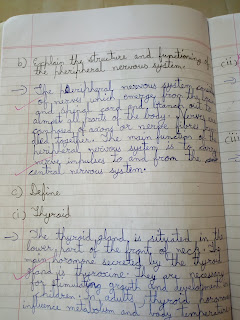 b) Explain the structure and functioning of
the pheripheral nervous system.
→ The peripheral nervous system
of nerves which emerge from
and spinal cord and branch out to
almost all parts of the body. A nerve
composed of axons or nerve fibres
gled together. The main function of the
peripheral nervous system is to carry
nerve impulses to and from the
central nervous system.
c) Define
(i) Thyroid
→ The thyroid gland is situated in the
lower part or front of neck. The
main hormone secreted by the thyroid
gland is thyroxine. They are necessary
for stimulating growth and development in
children. In adults, thyroid hormones
influence metabolism and body temperature
cii)
ciii